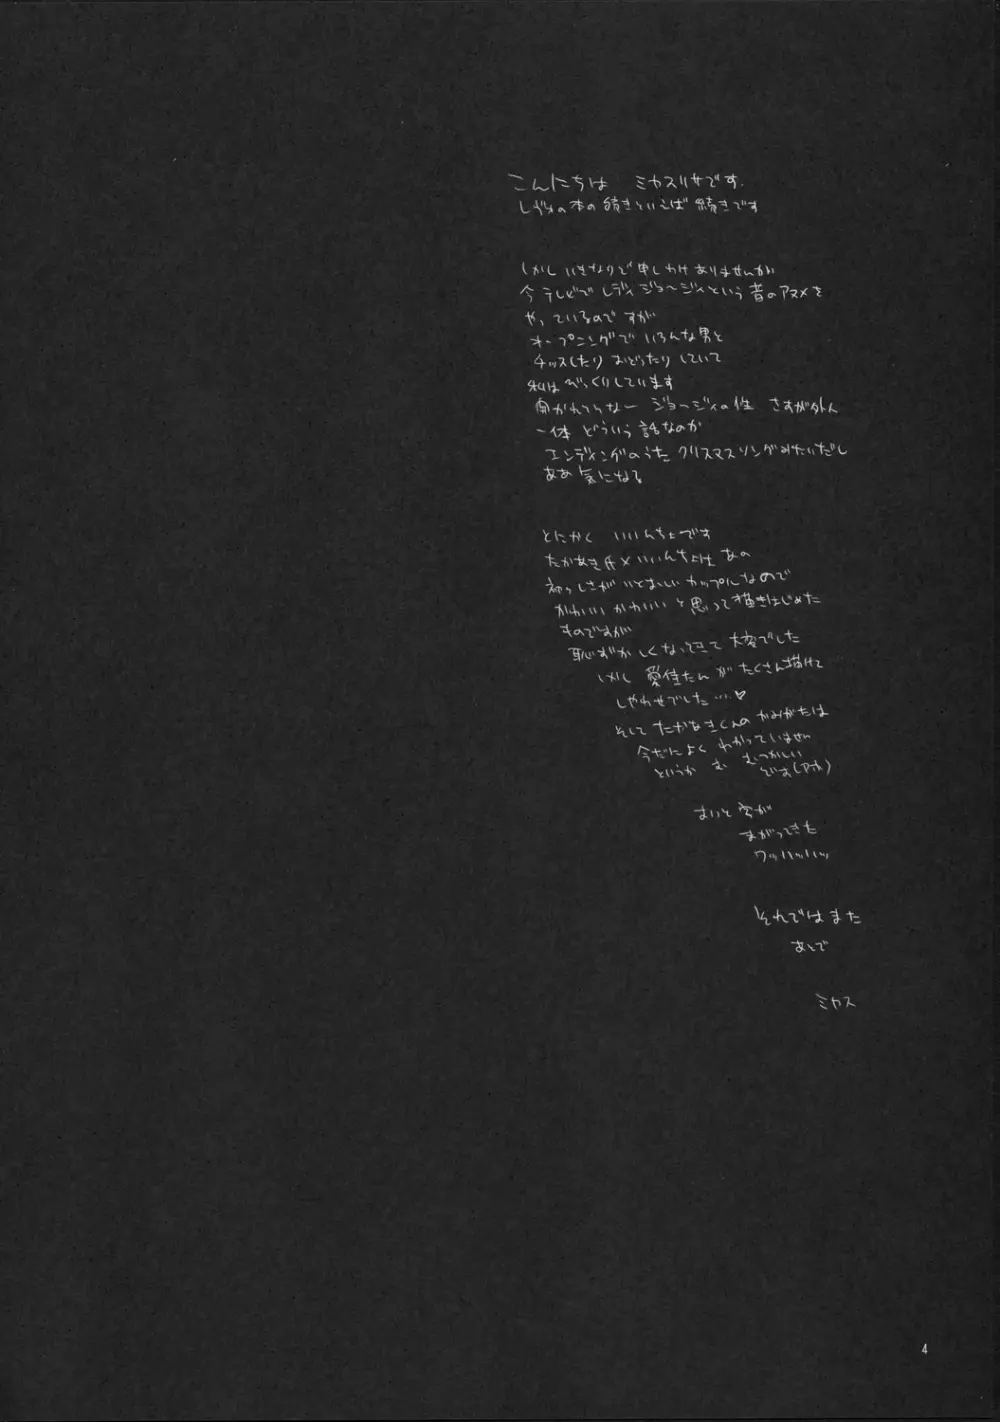 こんにちは ミカスリサです.
の本の続きといえば 続きです
しかし いきなりで 申しわけありませんが
今 テレビで レディ ジョージィという 昔のアニメを
やっているのですが
オープニングで いろんな男と
チッスしたり おどったり していて
私は びっくりしています
ジョージィの性 さすが外人
一体 どういう 話なのか
エンディングのうた クリスマスソングみたいだし
ああ 気になる
とにかく いいんちょです
たかあき氏×いいんちょは あの
がいとおしい カップルなので
かわいい かわいい と 思って 描きはじめた
ものですが
恥ずかしくなってきて 大変でした
しかし 愛佳たん が たくさん描けて
しやわせでした…♡
そして たかあきくんの かみがたは
今だに よく わかっていません
というか む むつかしい
です(アホ)
字が
まがってきた
ワッハッハッ
それでは また
あとで
ミカス
4